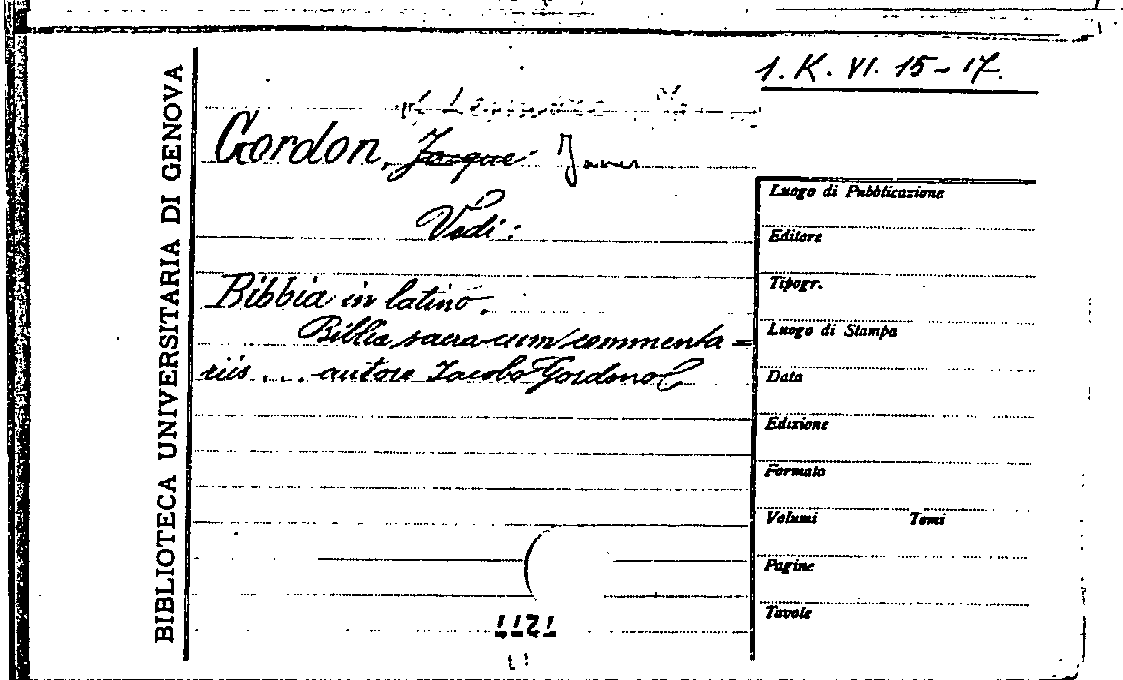 1. K. VI. 15-17.
BIBLIOTECA UNIVERSITARIA DI GENOVA
Gordon, Jacque James
Vedi:
Bibbia in latino.
Biblia sacra cum commenta=
riis ... autore Iacobo Gordono
Luogo di Pubblicazione
Editore
Tipogr.
Luogo di Stampa
Data
Edizione
Formato
Volumi Tomi
Pagine
Tavole